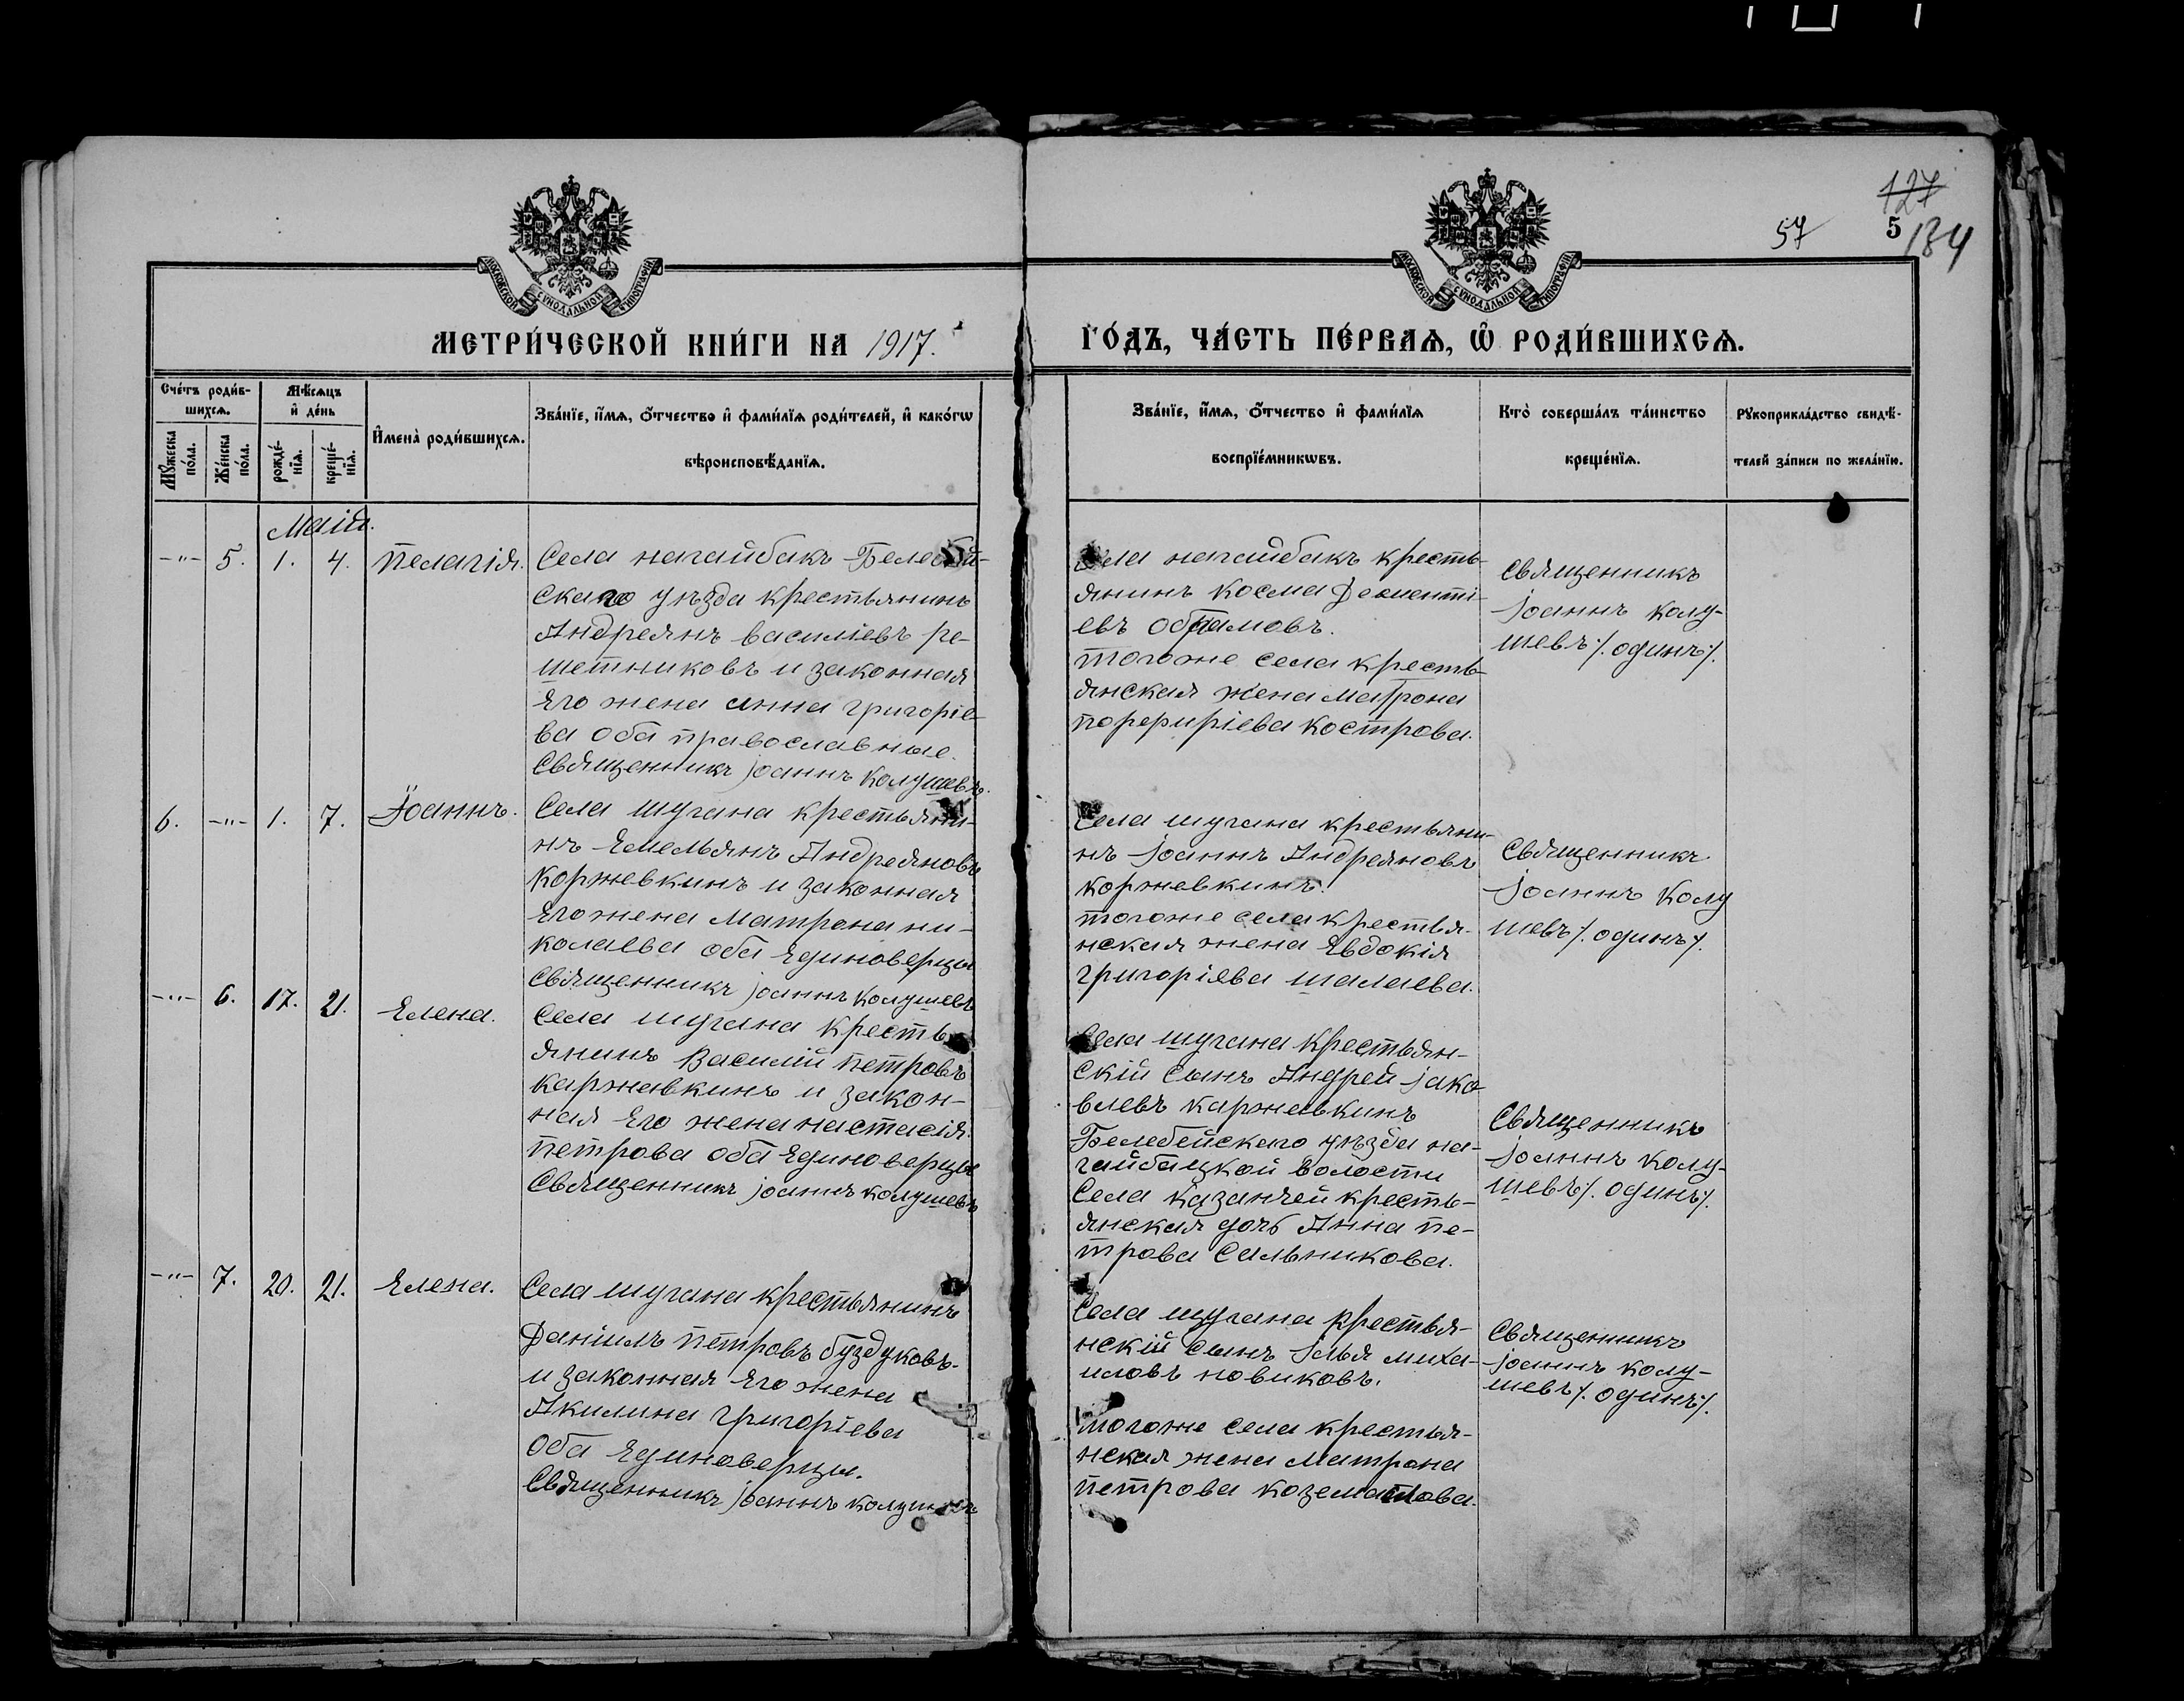 127
57
5
134
МОСКОВСКОЙ СѴНОДАЛЬНОЙ ТИПОГРАФІИ
МОСКОВСКОЙ СѴНОДАЛЬНОЙ ТИПОГРАФІИ
МЕТРИ́ЧЕСКОЙ КНИ́ГИ НА 1917.
ГО́ДЪ, ЧА́СТЬ ПЕ́РВАѦ, Ѡ РОДИ́ВШИХСѦ.
Сче́тъ роди́в-
шихсѧ.
Мѹ́жеска
по́ла.
Же́нска
по́ла.
Мѣ́сѧцъ
и҆ де́нь
рожде́-
нїѧ.
креще́-
нїѧ.
И҆мена̀ роди́вшихсѧ.
Зва́нїе, и҆́мѧ, ѻ҆́тчество и҆ фами́лїѧ роди́телей, и҆ како́гѡ
вѣроисповѣ́данїѧ.
Зва́нїе, и҆́мѧ, ѻ҆́тчество и҆ фами́лїѧ
воспрїе́мникѡвъ.
Кто̀ соверша́лъ та́инство
креще́нїѧ.
Рѹкоприкла́дство свидѣ́-
телей за́писи по жела́нїю.
Маія.
-"- 5. 1. 4. Пелагія.
Села нагайбакъ Белебей-
скаго уѣзда крестьянинъ
Андреянъ Василіевъ Ре-
шетниковъ и законная
Его жена Анна Григоріе-
ва оба православные.
Священникъ Іоаннъ Колушевъ.
Села нагайбакъ кресть-
янинъ Косма Дементі-
евъ Обрамовъ.
тогоже села кресть-
янская жена Матрона
Порфиріева Кострова.
Священникъ
Іоаннъ Колу-
шевъ /. одинъ /.
6. -"- 1. 7. Іоаннъ.
Села шугана крестьяни-
нъ Емельянъ Андреяновъ
Коржевкинъ и законная
Его жена Матрона Ни-
колаева оба Единоверцы
Священникъ Іоаннъ Колушевъ
Села шугана крестьяни-
нъ Іоаннъ Андреяновъ
Коржевкинъ.
тогоже села крестья-
нская жена Евдокія
Григоріева Шалаева.
Священникъ
Іоаннъ Колу
шевъ /. одинъ /.
-"- 6. 17. 21. Елена.
Села шугана кресть-
янинъ Василій Петровъ
Каржавкинъ и закон-
ная Его жена Настасія
Петрова оба Единоверцы
Священникъ Іоаннъ Колушевъ
Села шугана крестьян-
скій сынъ Андрей Іако
влевъ Каржевкинъ
Белебейскаго уѣзда на-
гайбацкой волости
Села Казанчей кресть-
янская дочь Анна Пе-
трова Сальникова.
Священникъ
Іоаннъ Колу-
шевъ /. одинъ /.
-"- 7. 20. 21. Елена.
Села шугана крестьянинъ
Даніилъ Петровъ Буздуковъ
и законная Его жена
Акилина Григоріева
Оба Единоверцы.
Священникъ Іоаннъ Колушевъ
Села шугана крестья-
нскій сынъ Илья Миха-
иловъ Новиковъ.
тогоже села крестья-
нская жена Матрона
Петрова
Священникъ
Іоаннъ Колу-
шевъ /. одинъ /.